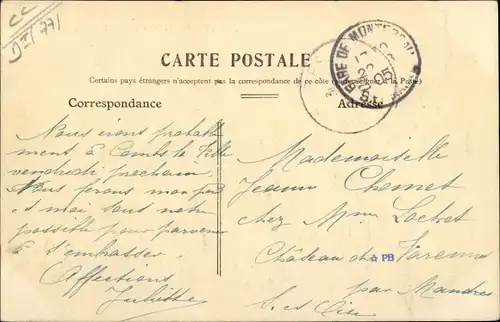 CARTE POSTALE
Certains pays étrangers n'acceptent pas la correspondance de ce côté (se renseigner à la Poste)
Correspondance
Adresse
GARE DE MONTEREAU
Nous irons probable
ment à Combs la Ville
vendredi prochain.
Nous ferons mon
et moi tout notre
possible pour parvenir
à t'embrasser.
Affections
Juliette
Mademoiselle
Jeanne Chemet
chez Mme Lochet
Château de Varennes
par Mandres
S. et Oise
PB